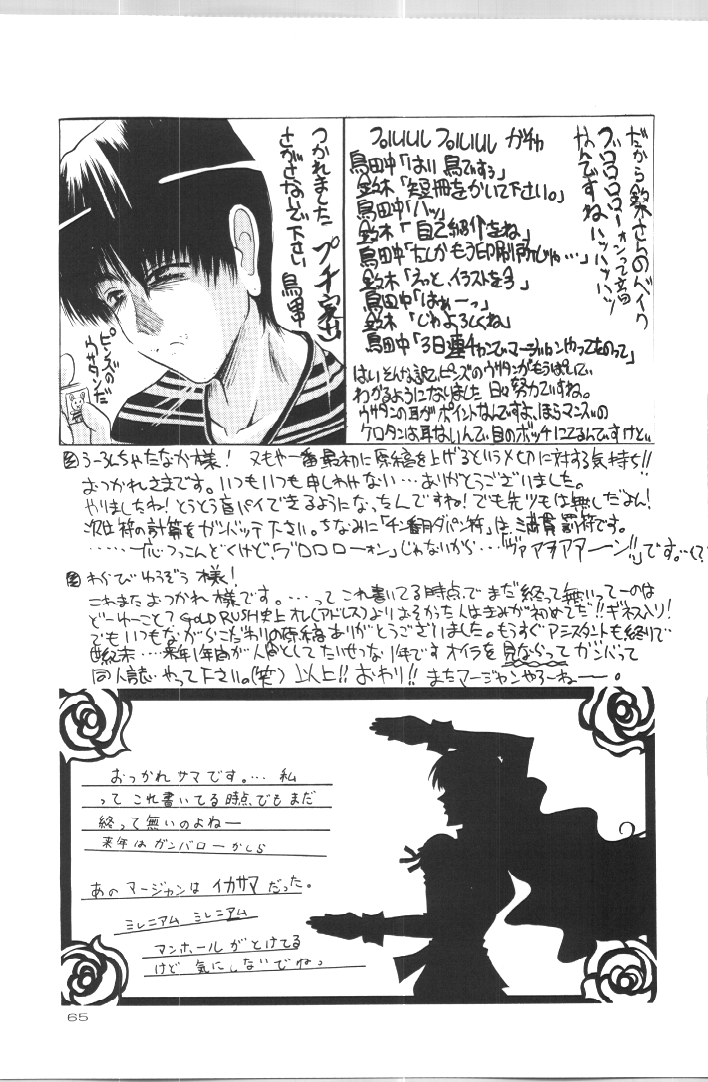 だから鈴木さんのバイク
ブロロロローォンって云う
なんですねハッハッハッ
フルルルル フルルルル ガチャ
鳥田中「はい 鳥ですぅ」
鈴木「短冊をかいて下さい。」
鳥田中「ハッ」
鈴木「自己紹介をね」
鳥田中「たしかもう印刷所じゃ…」
鈴木「えっと、イラストを今」
鳥田中「はぁーっ」
鈴木「じゃよろしくね」
鳥田中「3日連チャンでマージャンやってたのって」
はいそんな訳で、ピンズのウサタンがもうぱいで
わかるようになりました 日々努力ですね。
ウサタンの耳がポイントなんですよ、ほらマンズの
ケロタンは耳ないんで、目のボッチにてるんですけど、
つかれました プチ家出
さがさないで下さい 鳥田中
ピンズの
ウサタンだ
うーろんちゃたなか様! 又もや一番最初に原稿を上げるというメ切に対する気持ち!!
おつかれさまです。いつもいつも申しわけない…ありがとうございました。
やりましたね!とうとう盲パイできるようになったんですね!でも先ヅモは無しだよん!
次は符の計算をガンバッテ下さい。ちなみに「チン番月ダパン符」は満貫罰符です。
わらびゆうぞう様!
これまたおつかれ様です。…って これ書いてる時点で まだ終って無いってーのは
どーゆーこと? GOLD RUSH史上 オレ(アドレス)よりおそかった人はきみが初めてだ!!ギネス入り!
でもいつもながらこだわりの原稿ありがとうございました。もうすぐアシスタントも終りで
世紀末…来年1年間が人間としてたいせつな1年です オイラを見ならってガンバって
同人誌やって下さい。(笑) 以上!! おわり!! またマージャンやろーねー。
おつかれサマです。… 私
って これ書いてる時点でもまだ
終って無いのよねー
来年はガンバローかしら
あのマージャンは イカサマだった。
ミレニアム ミレニアム
マンホールがとけてる
けど 気にしないでねっ
65